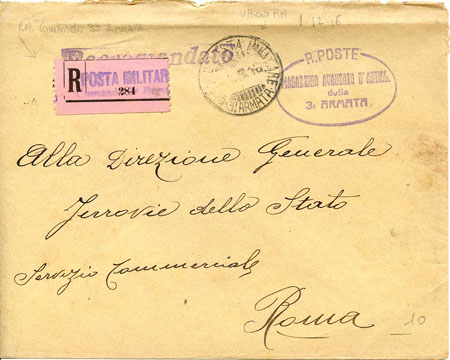 P.M. Comando 3ª Armata
Ufficio P.M.
1-12-16
Raccomandato
R
POSTA MILITAR
284
POSTA MILITARE
3ª ARMATA
R. POSTE
MAGAZZINO AVANZATO D'ARTIGL.
della
3ª ARMATA
Alla Direzione Generale
Ferrovie dello Stato
Servizio Commerciale
Roma
10